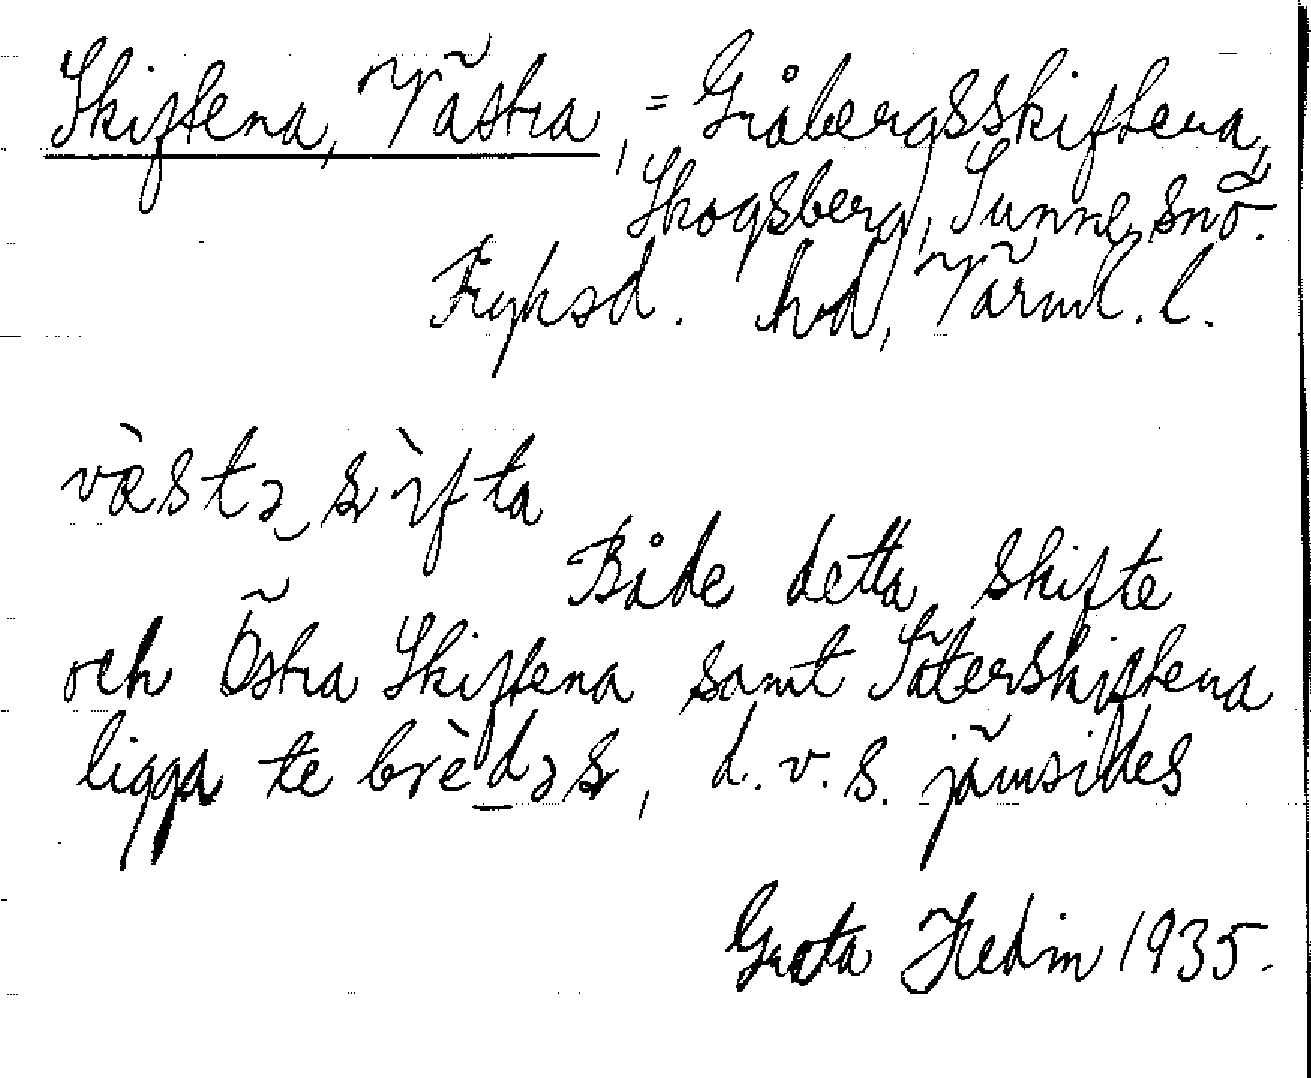 Skiftena, Västra, = Gråbergsskiftena,
Skogsberg, Sunne snö.
Fryksd. hd, Värml. l.
Både detta skifte
och Östra Skiftena samt Säterskiftena
ligga te brèdəs, d.v.s. jämsides
Greta Hedin 1935.